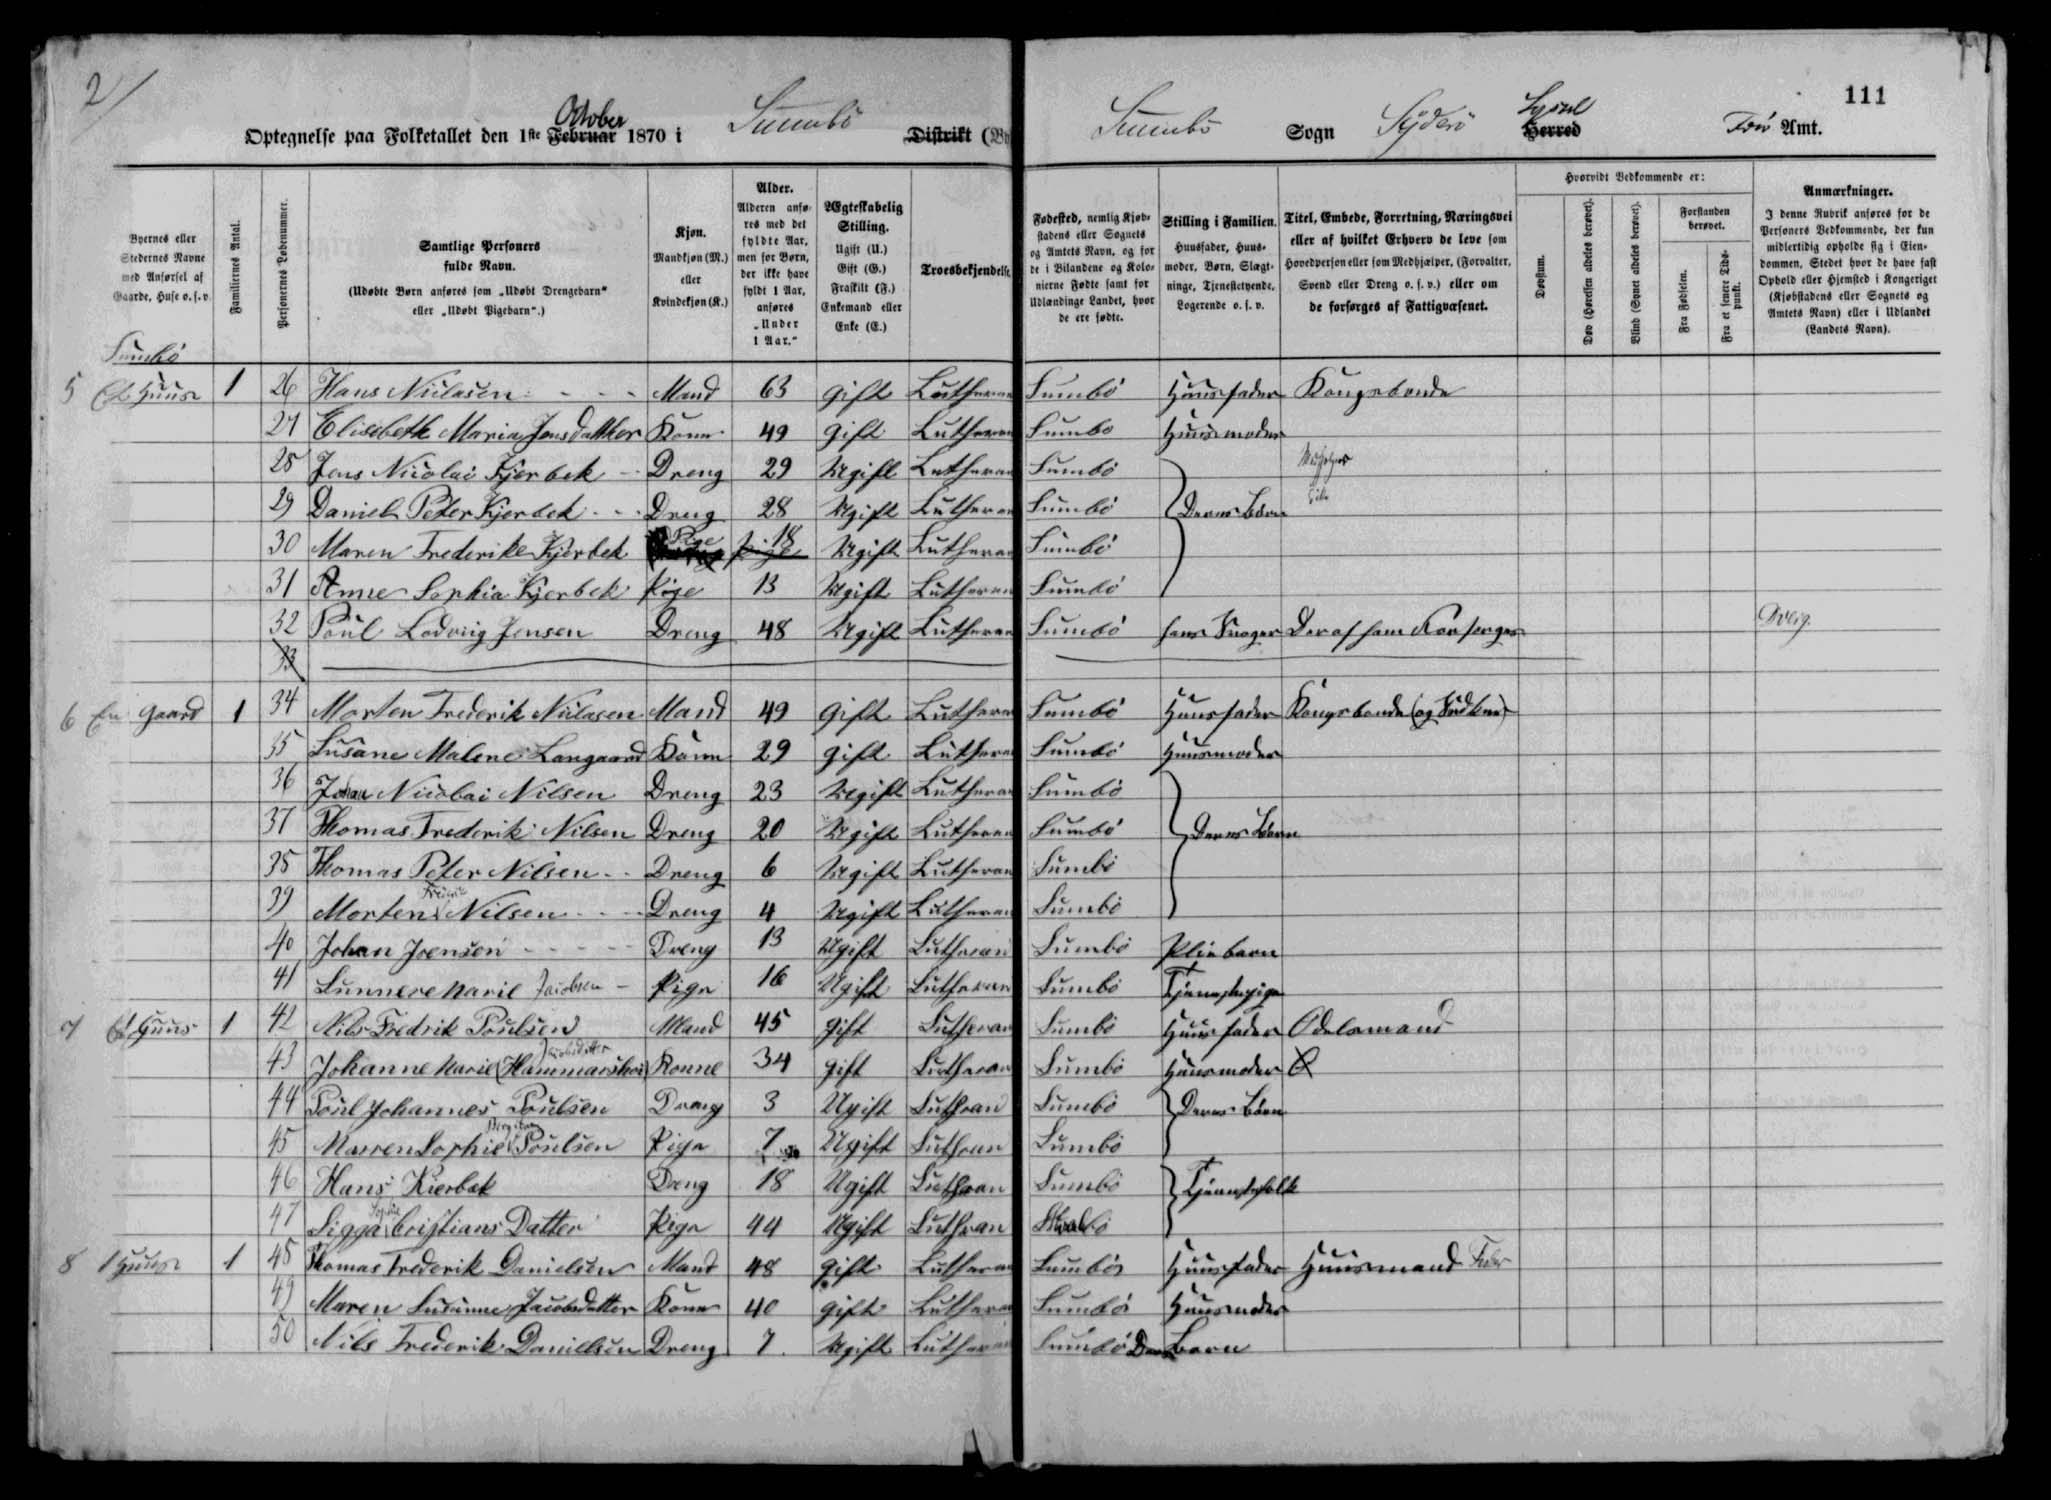 2/
111
October
Optegnelse paa Folketallet den 1ste Februar 1870 i Sumbö Distrikt (By
Sumbö Sogn Syderö Syssel Herred Amt.
Byernes eller Stedernes Navne med Anførsel af Gaarde, Huse o.s.v.
Familiernes Antal.
Personernes Løbenummer.
Samtlige Personers fulde Navn.
(Udøbte Børn anføres som „Udøbt Drengebarn“ eller „Udøbt Pigebarn“.)
Kjøn.
Mandkjøn (M.) eller Kvindekjøn (K.)
Alder.
Alderen anføres med det fyldte Aar, men for Børn, der ikke have fyldt 1 Aar, anføres „Under 1 Aar.“
Ægteskabelig Stilling.
Ugift (U.)
Gift (G.)
Fraskilt (F.)
Enkemand eller Enke (E.)
Troesbekjendelse.
Fødested, nemlig Kjøbstadens eller Sognets og Amtets Navn, og for de i Bilandene og Kolonierne Fødte samt for Udlændinge Landet, hvor de ere fødte.
Stilling i Familien.
Huusfader, Huusmoder, Børn, Slægtninge, Tjenestetyende, Logerende o. s. v.
Titel, Embede, Forretning, Næringsvei eller af hvilket Erhverv de leve som Hovedperson eller som Medhjælper, (Forvalter, Svend eller Dreng o. s. v.) eller om de forsørges af Fattigvæsenet.
Hvorvidt Vedkommende er:
Døvstum.
Døv (Hørelsen aldeles berøvet).
Blind (Synet aldeles berøvet).
Forstanden berøvet.
Fra Fødselen.
Fra et senere Tidspunkt.
Anmærkninger.
I denne Rubrik anføres for de Personers Vedkommende, der kun midlertidig opholde sig i Eiendommen, Stedet hvor de have fast Ophold eller Hjemsted i Kongeriget (Kjøbstadens eller Sognets og Amtets Navn) eller i Udlandet (Landets Navn).
Sumbö
5 Et Huus 1 26 Hans Niclasen Mand 63 gift Lutheran Sumbö Huusfader Kongsbonde
27 Elisebeth Maria Jensdatter Kone 49 gift Lutheran Sumbo Huusmoder
28 Jens Nicolai Kjerbek Dreng 29 Ugift Lutheran Sumbö
29 Daniel Peter Kjerbek Dreng 28 Ugift Lutheran Sumbö Deres Børn
30 Maren Frederike Kjerbek Pige 18 Ugift Lutheran Sumbö
31 Anne Sophia Kjerbek Pige 13 Ugift Lutheran Sumbö
32 Poul Lodvig Jensen Dreng 48 Ugift Lutheran Sumbö hans Svoger Der af ham Forsørges
33
6 En Gaard 1 34 Morten Frederik Niclasen Mand 49 gift Lutheran Sumbö Huusfader Kongsbonde
35 Susane Malene Langgaard Kone 29 gift Lutheran Sumbö Huusmoder
36 Johan Nicolai Nilsen Dreng 23 Ugift Lutheran Sumbö
37 Thomas Frederik Nilsen Dreng 20 Ugift Lutheran Sumbö Deres Børn
38 Thomas Peter Nilsen Dreng 6 Ugift Lutheran Sumbö
39 Morten Nilsen Dreng 4 Ugift Lutheran Sumbö
40 Johan Joensen Dreng 13 Ugift Lutheran Sumbö Pliebarn
41 Sunneve Marie Jacobsen Pige 16 Ugift Lutheran Sumbö Tjenestepige
7 Et Huus 1 42 Nils Fredrik Poulsen Mand 45 gift Lutheran Sumbö Huusfader Odelsmand
Jacobsdatter
43 Johanne Marie (Hammarshei) Konne 34 gift Lutheran Sumbö Huusmoder
44 Poul Johannes Poulsen Dreng 3 Ugift Luthran Sumbö Deres Börn
45 Marren Sophie Poulsen Pige 7 Ugift Luthran Sumbö
46 Hans Kierbek Dreng 18 Ugift Luthran Sumbö Tjenestefolk
Sophie
47 Sigga Cristians Datter Pige 44 Ugift Luthran
8 1 Huus 1 48 Thomas Frederik Danielsen Mand 48 gift Lutheran Sumbö Huusfader Huusmand
49 Maren Susanne Jacobsdatter Kone 40 gift Lutheran Sumbö Huusmoder
50 Nils Frederik Danielsen Dreng 7 Ugift Lutheran Sumbö Deres Barn